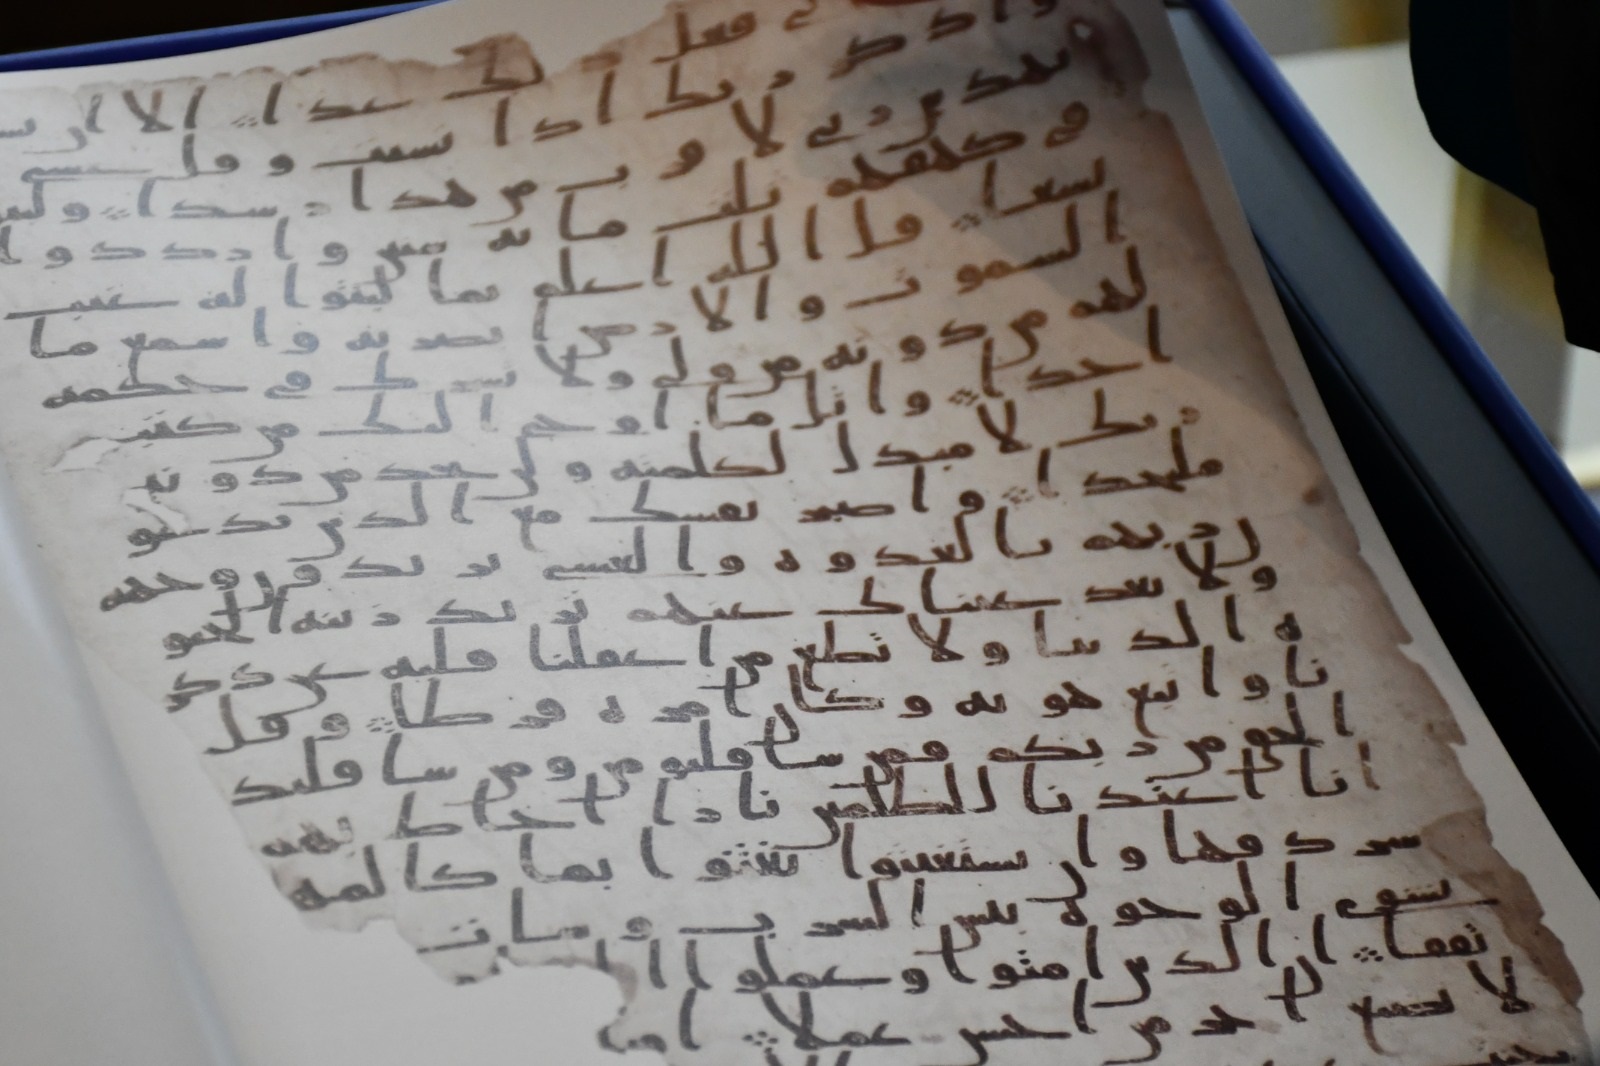 فعل ذلك غدا الا ان يشا
واذكر ربك اذا نسيت وقل عسى
يهدين ربي لاقرب من هذا رشدا ولبثوا
في كهفهم ثلث مائة سنين وازدادوا
تسعا قل الله اعلم بما لبثوا له غيب
السموت والارض ابصر به واسمع ما
لهم من دونه من ولي ولا يشرك في حكمه
احدا واتل ما اوحي اليك من كتب
ربك لا مبدل لكلمته ولن تجد من دونه
ملتحدا واصبر نفسك مع الذين يدعو
ن ربهم بالغدوة والعشي يريدون وجهه
ولا تعد عيناك عنهم تريد زينة الحيو
ة الدنيا ولا تطع من اغفلنا قلبه عن ذكر
نا واتبع هويه وكان امره فرطا وقل
الحق من ربكم فمن شا فليومن ومن شا فليكفر
انا اعتدنا للظلمين نارا احاط بهم
سردقها وان يستغيثوا يغثوا بما كالمه
يشوي الوجوه بئس الشرب وسات
مرتفقا ان الذين امنوا وعملوا ال
لا نضيع اجر من احسن عملا اول